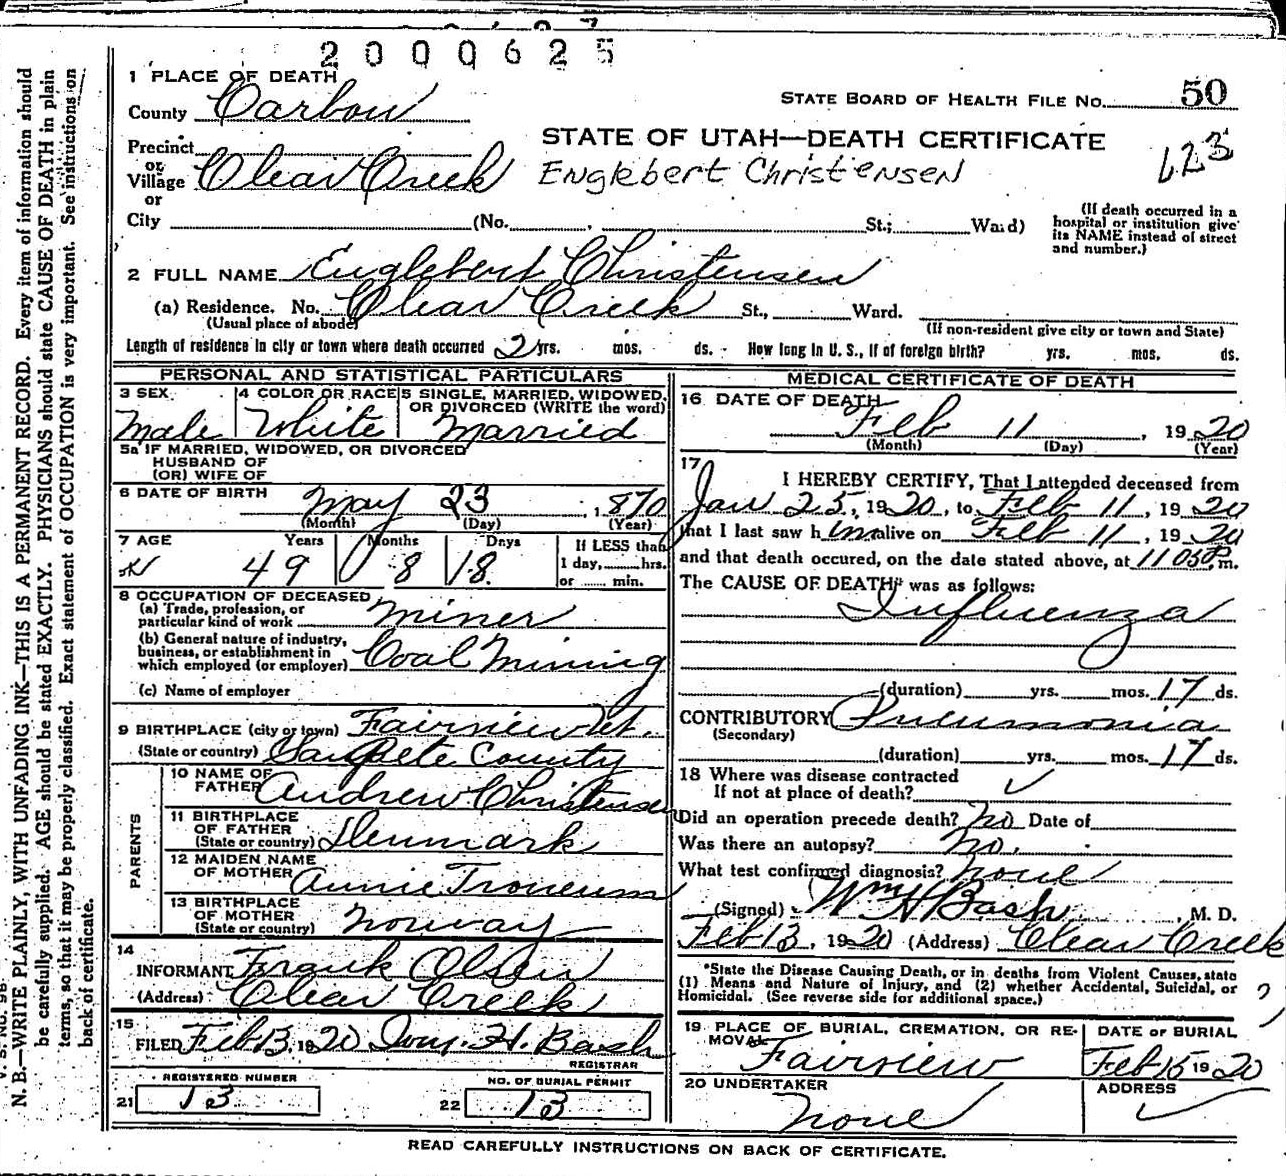 2000625
1 PLACE OF DEATH
STATE BOARD OF HEALTH FILE No. 50
County Carbon
STATE OF UTAH—DEATH CERTIFICATE
123
Precinct
or
Village Clear Creek
Englebert Christensen
or
City (No. St.; Ward)
(If death occurred in a
hospital or institution give
its NAME instead of street
and number.)
2 FULL NAME Englebert Christensen
(a) Residence. No. Clear Creek St., Ward.
(Usual place of abode)
(If non-resident give city or town and State)
Length of residence in city or town where death occurred 2 yrs. mos. ds. How long in U. S., if of foreign birth? yrs. mos. ds.
PERSONAL AND STATISTICAL PARTICULARS
3 SEX
Male
4 COLOR OR RACE
White
5 SINGLE, MARRIED, WIDOWED,
OR DIVORCED (WRITE the word)
Married
5a IF MARRIED, WIDOWED, OR DIVORCED
HUSBAND OF
(OR) WIFE OF
6 DATE OF BIRTH May 23, 1870
(Month) (Day) (Year)
7 AGE Years Months Days
49 8 18
If LESS than
1 day, hrs.
or min.
8 OCCUPATION OF DECEASED
(a) Trade, profession, or
particular kind of work Miner
(b) General nature of industry,
business, or establishment in
which employed (or employer) Coal Mining
(c) Name of employer
9 BIRTHPLACE (city or town) Fairview Ut.
(State or country) Sanpete County
PARENTS
10 NAME OF
FATHER Andrew Christensen
11 BIRTHPLACE
OF FATHER
(State or country) Denmark
12 MAIDEN NAME
OF MOTHER Annie
13 BIRTHPLACE
OF MOTHER
(State or country) Norway
14
INFORMANT Frank Olsen
(Address) Clear Creek
15
FILED Feb 13, 1920 Wm. H. Bash
REGISTRAR
REGISTERED NUMBER
21 13
NO. OF BURIAL PERMIT
22 13
MEDICAL CERTIFICATE OF DEATH
16 DATE OF DEATH
Feb 11, 1920
(Month) (Day) (Year)
17
I HEREBY CERTIFY, That I attended deceased from
Jan 25, 1920, to Feb 11, 1920
that I last saw him alive on Feb 11, 1920
and that death occured, on the date stated above, at 11 05 P m.
The CAUSE OF DEATH* was as follows:
Influenza
(duration) yrs. mos. 17 ds.
CONTRIBUTORY Pneumonia
(Secondary)
(duration) yrs. mos. 17 ds.
18 Where was disease contracted
If not at place of death?
Did an operation precede death? No Date of
Was there an autopsy? No.
What test confirmed diagnosis? None
(Signed) Wm H Bash, M. D.
Feb 13, 1920 (Address) Clear Creek
*State the Disease Causing Death, or in deaths from Violent Causes, state
(1) Means and Nature of Injury, and (2) whether Accidental, Suicidal, or
Homicidal. (See reverse side for additional space.)
19 PLACE OF BURIAL, CREMATION, OR RE-
MOVAL
Fairview
DATE OF BURIAL
Feb 15 1920
20 UNDERTAKER
None
ADDRESS
READ CAREFULLY INSTRUCTIONS ON BACK OF CERTIFICATE.
V. S. No. 98
N. B.—WRITE PLAINLY, WITH UNFADING INK—THIS IS A PERMANENT RECORD. Every item of information should
be carefully supplied. AGE should be stated EXACTLY. PHYSICIANS should state CAUSE OF DEATH in plain
terms, so that it may be properly classified. Exact statement of OCCUPATION is very important. See instructions on
back of certificate.